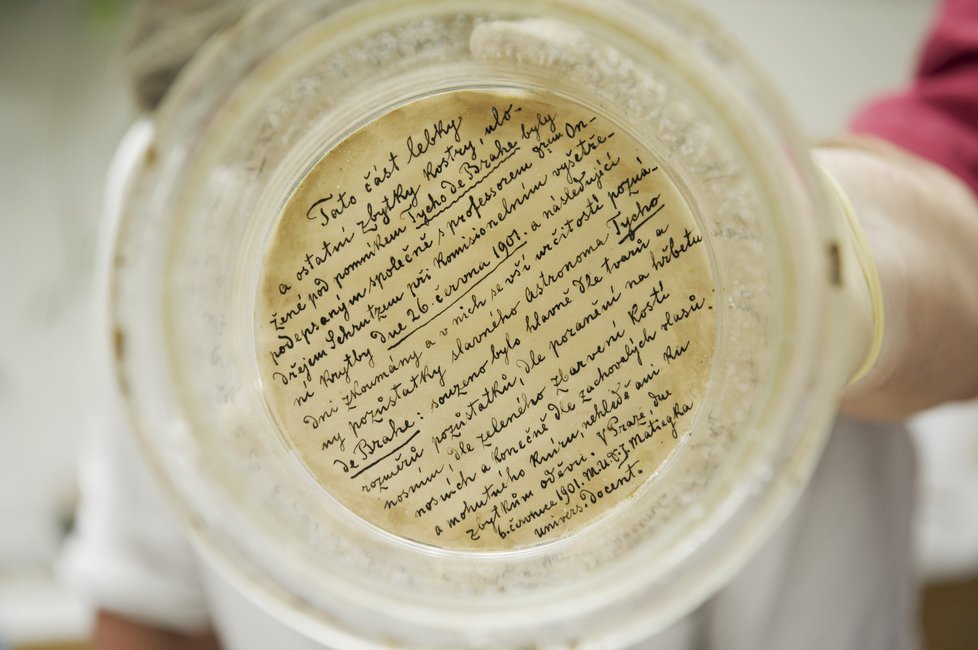 Tato část lebky
a ostatní zbytky kostry, ulo-
žené pod pomníkem Tycho de Brahe byly
podepsaným společně s professorem jrem On-
dřejem Schrutzem při komisionelním vyšetře-
ní krytby dne 26. června 1901. a následující
dni zkoumány a v nich se vší určitostí pozná-
ny pozůstatky slavného astronoma Tycho
de Brahe: souzeno bylo hlavně dle tvarů a
rozměrů pozůstatků, dle poranění na hřbetu
nosním, dle zeleného zbarvení kostí
nosních a konečně dle zachovalých vlasů
a mohutného kníru, nehledě ani ku
zbytkům oděvu. V Praze, dne
6. července 1901. MUDJ. Matiegka
univers. docent.